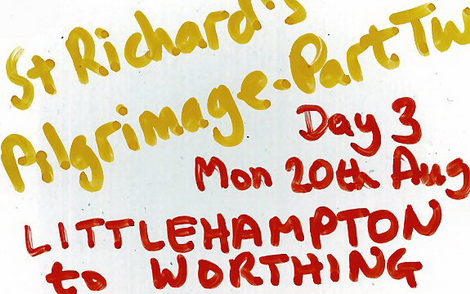 St Richard's
Pilgrimage-Part Tw
Day 3
Mon 20th Aug
LITTLEHAMPTON
to WORTHING